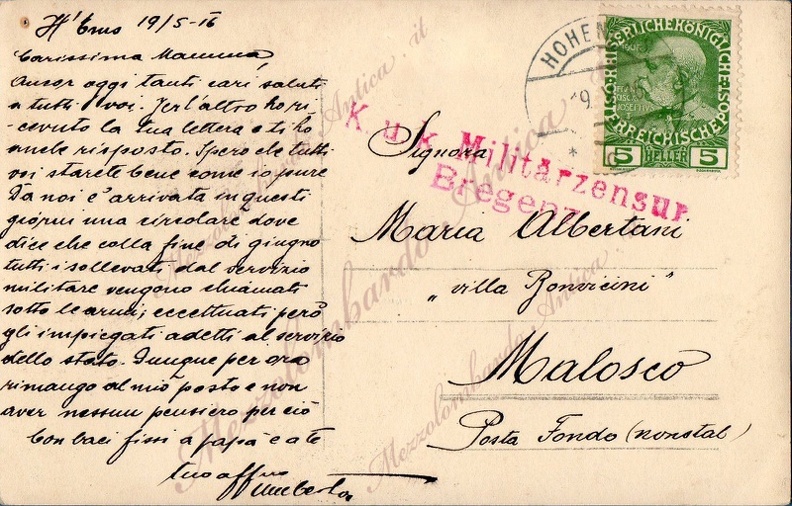 H'Ems 19/5-16
Carissima Mamma,
Ancor oggi tanti cari saluti
a tutti voi. Jerl'altro ho ri-
cevuto la tua lettera e ti ho
anche risposto. Spero che tutti
voi starete bene come io pure
Da noi è arrivata in questi
giorni una circolare dove
dice che colla fine di giugno
tutti i sollevati dal servizio
militare vengono chiamati
sotto le armi; eccettuati però
gli impiegati adetti al servizio
dello stato. Dunque per ora
rimango al mio posto e non
aver nessun pensiero per ciò
Con baci fissi a papà e a te
tuo affmo
Umberto
HOHEN
K.K. KAISERLICHE KÖNIGLICHE
ÖSTERREICHISCHE POST
5 HELLER 5
K u k Militärzensur
Bregenz
Signora
Maria Albertani
„villa Bonvicini"
Malosco
Posta Fondo (nonstal)
Mezzolombardo Antica.it
Mezzolombardo Antica.it
Mezzolombardo Antica.